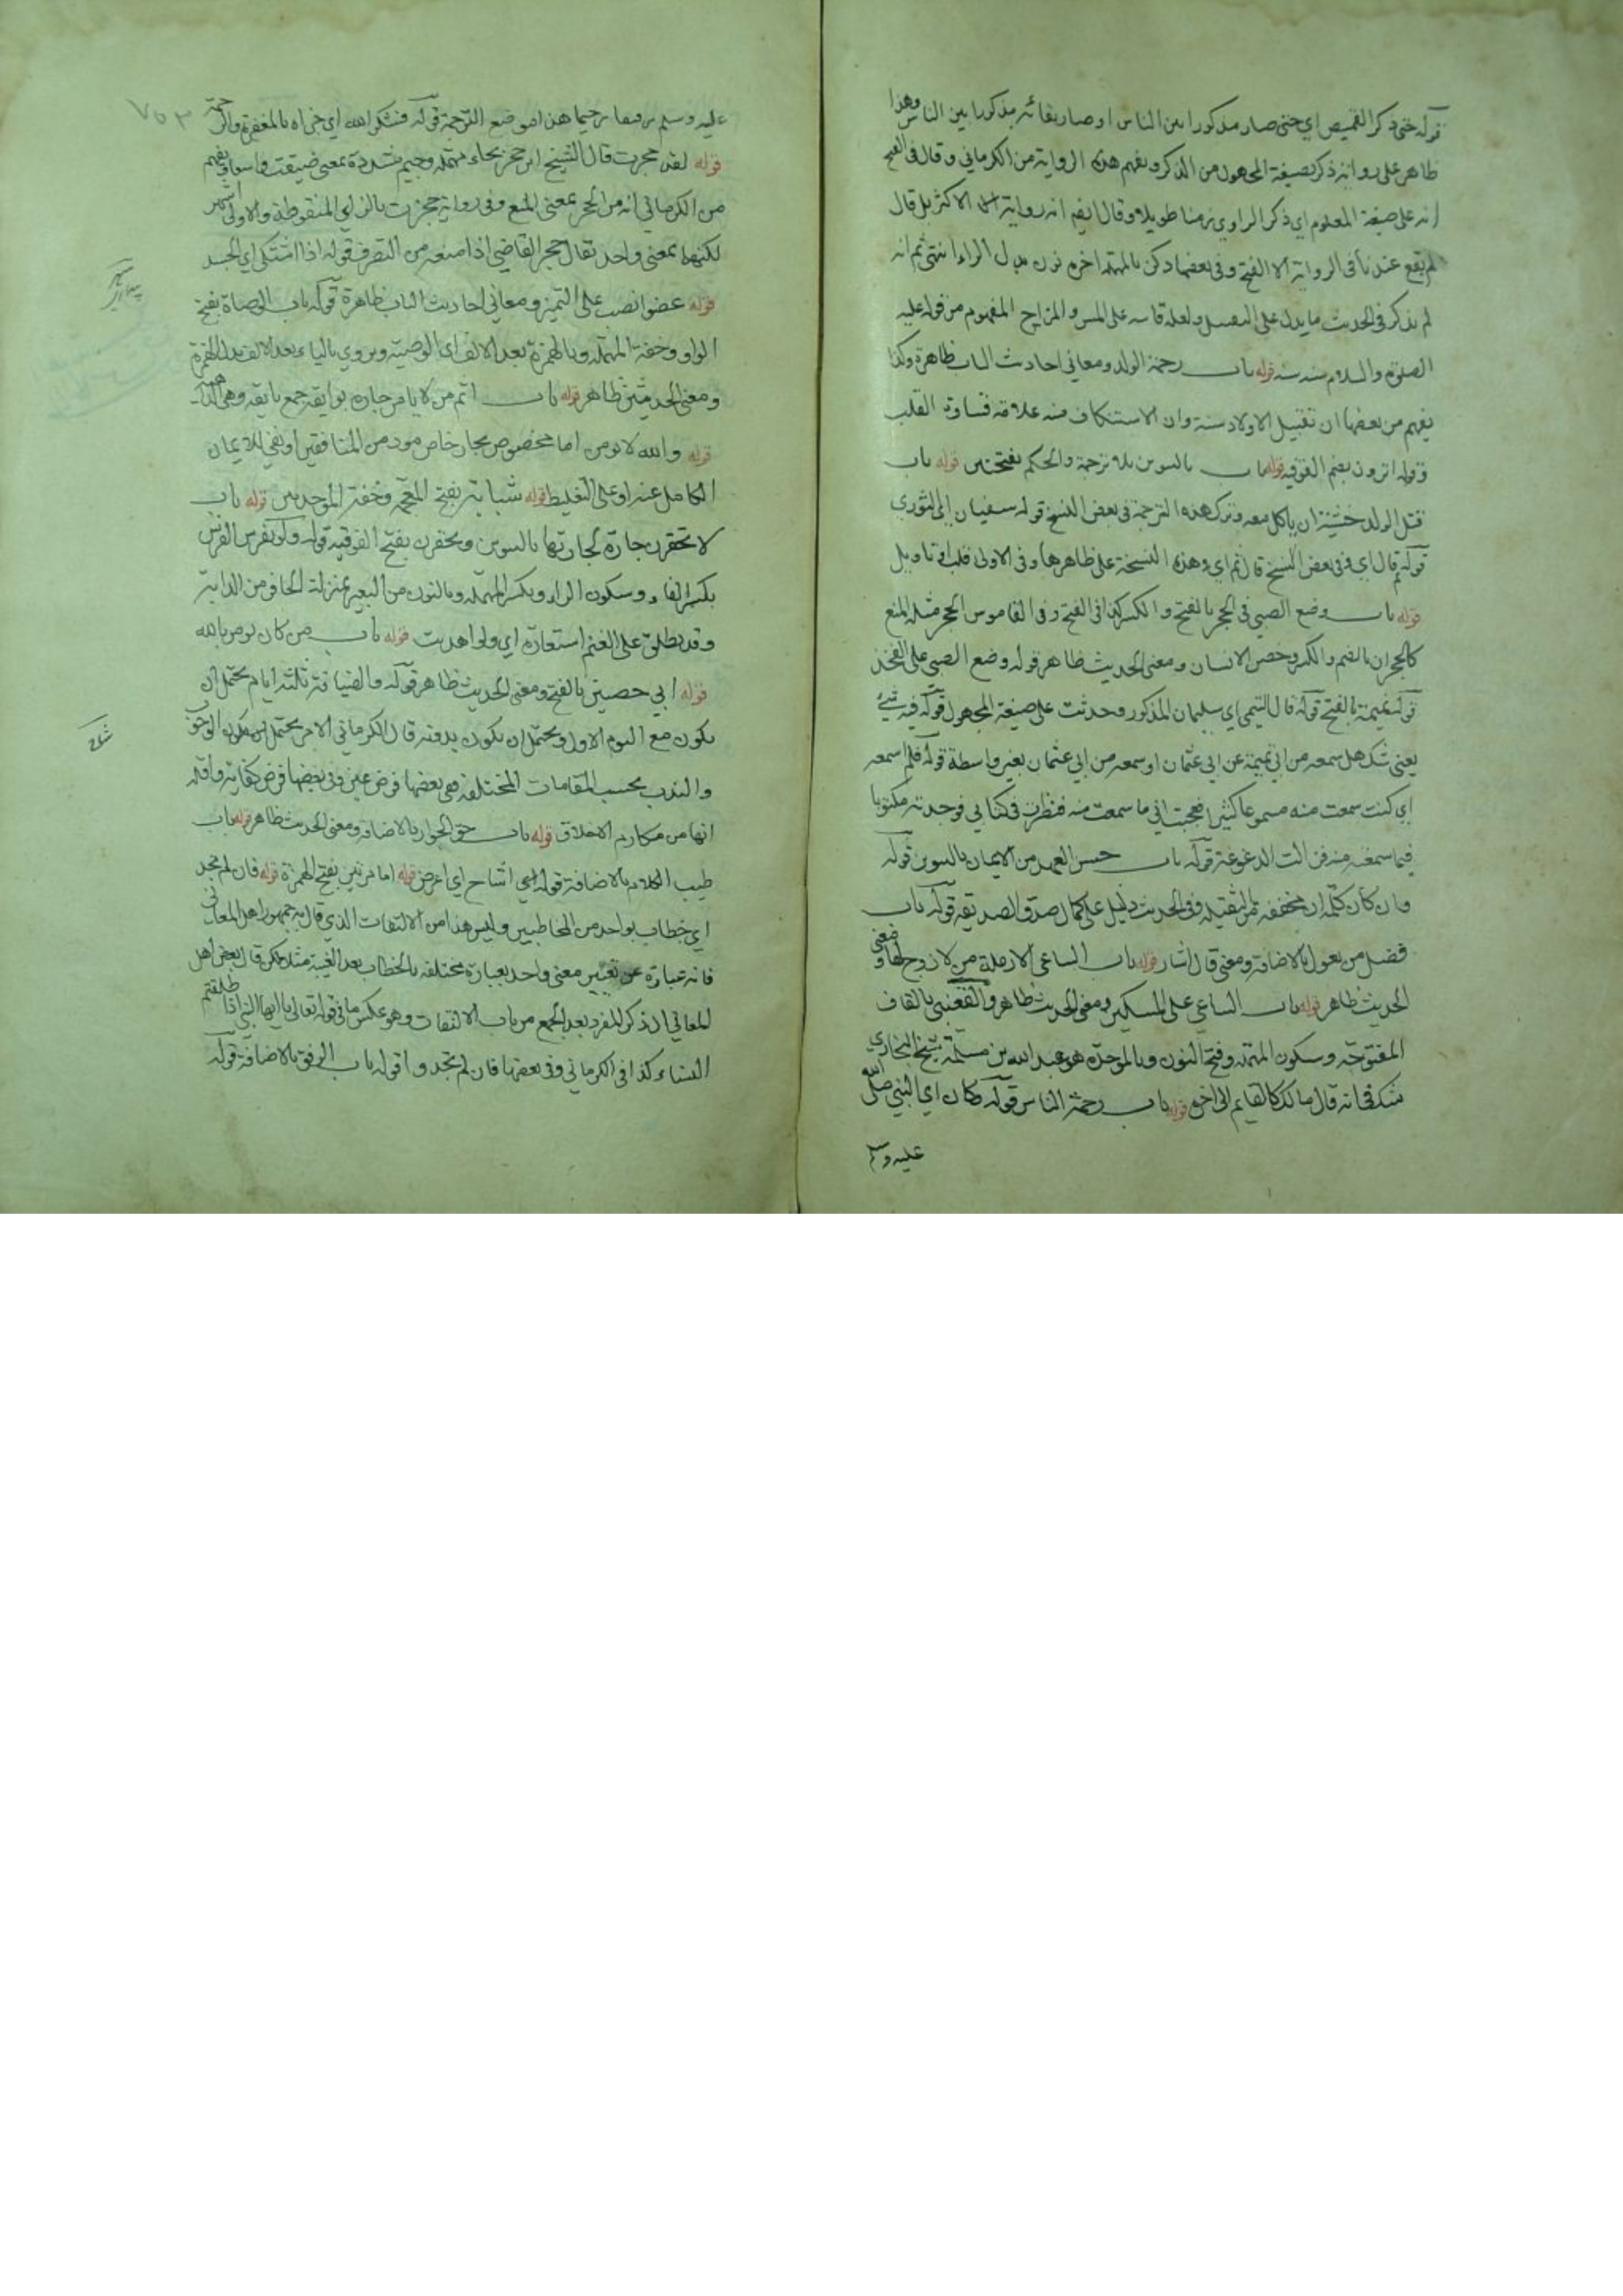 قوله حتى ذكر القميص اي حتى صار مذكورا بين الناس او صار بقائه مذكورا بين الناس وهذا
ظاهر على رواية ذكر بصيغة المجهول من الذكر ويفهم هذه الرواية من الكرماني وقال في الفتح
انه على صيغة المعلوم اي ذكر الراوي زمنا طويلا وقال ايضا انه رواية الاكثر بل قال
لم يقع عندنا في الرواية الا الفتح وفي بعضها دكن بالمهملة اخره نون بدل الراء انتهى ثم انه
لم يذكر في الحديث ما يدل على التقبيل ولعله قاسه على المس والمزاح المفهوم من قوله عليه
الصلوة والسلام سنه سنه قوله باب رحمة الولد ومعاني احاديث الباب ظاهرة وكذا
يفهم من بعضها ان تقبيل الاولاد سنة وان الاستنكاف منه علامة قساوة القلب
قوله اترون بضم الفوقية قوله باب بالتنوين بلا ترجمة والحكم بفتحتين قوله باب
قتل الولد خشية ان ياكل معه وترك هذه الترجمة في بعض النسخ قوله سفيان اي الثوري
قوله ثم قال اي وفي بعض النسخ قال ثم اي وهذه النسخة على ظاهرها وفي الاولى قلب او تاويل
قوله باب وضع الصبي في الحجر بالفتح والكسر كذا في الفتح وفي القاموس الحجر مثلثة المنع
كالحجران بالضم والكسر وحضن الانسان ومعنى الحديث ظاهر قوله وضع الصبي على الفخذ
قوله تميمة بالفتح قوله قال التيمي اي سليمان المذكور وحدثت على صيغة المجهول قوله فيه شئ
يعني شك هل سمعه من ابي تميمة عن ابي عثمان او سمعه من ابي عثمان بغير واسطة قوله فلم اسمعه
اي كنت سمعت منه مسموعا كثيرا فعجبت اني ما سمعت منه فنظرت في كتابي فوجدته مكتوبا
فيما سمعته منه فزالت الدغدغة قوله باب حسن العهد من الايمان بالتنوين قوله
وان كان كلمة ان مخففة من الثقيلة وفي الحديث دليل على كمال صدق الصديقة قوله باب
فضل من يعول بالاضافة ومعنى قال اشار قوله باب الساعي الارملة من لا زوج لها ومعنى
الحديث ظاهر قوله باب الساعي على المسكين ومعنى الحديث ظاهر والقعنبي بالقاف
المفتوحة وسكون المهملة وفتح النون وبالموحدة هو عبد الله بن مسلمة شيخ البخاري
شك في انه قال مالك كالقايم الى اخره قوله باب رحمة الناس قوله وكان اي النبي صلى الله
عليه وسلم
عليه وسلم رفيقا رحيما هذا موضع الترجمة قوله فشكر الله اي جزاه بالمغفرة والرحمة
قوله لقد حجرت قال الشيخ ابن حجر بحاء مهملة وجيم مشددة بمعنى ضيقت واسعا ويفهم
من الكرماني انه من الحجر بمعنى المنع وفي رواية حجزت بالزاي المنقوطة والاولى اشهر
لكنهما بمعنى واحد يقال حجر القاضي اذا منعه من التصرف قوله اذا اشتكى اي الجسد
قوله عضوا نصب على التميز ومعاني احاديث الباب ظاهرة قوله باب الوصاة بفتح
الواو وخفة المهملة وبالهمزة بعد الالف اي الوصية ويروي بالياء بعد الالف بدل الهمزة
ومعنى الحديثين ظاهر قوله باب اثم من لا يامن جاره بوايقه جمع بايقة وهي
قوله والله لا يومن اما مخصوص بجار خاص من المنافقين او نفي للايمان
الكامل عنه او على التغليظ قوله شبابة بفتح المعجمة وخفة الموحدتين قوله باب
لا تحقرن جارة لجارتها بالتنوين وتحقرن بفتح الفوقية قوله ولو بفرسن الفرسن
بكسر الفاء وسكون الراء وبكسر المهملة وبالنون من البعير بمنزلة الحافر من الدابة
وقد يطلق على الغنم استعارة اي ولو اهديت قوله باب من كان يومن بالله
قوله ابي حصين بالفتح ومعنى الحديث ظاهر قوله والضيافة ثلثة ايام يحتمل ان
يكون مع اليوم الاول ويحتمل ان يكون بدونه قال الكرماني الامر يحتمل ان يكون الوجوب
والندب بحسب المقامات المختلفة ففي بعضها فرض عين وفي بعضها فرض كفاية واقله
انها من مكارم الاخلاق قوله باب حق الجوار بالاضافة ومعنى الحديث ظاهر قوله باب
طيب الكلام بالاضافة قوله اشاح اي اعرض قوله اما مرتين بفتح الهمزة قوله فان لم تجد
اي خطاب بواحد من المخاطبين وليس هذا من الالتفات الذي قال به جمهور اهل المعاني
فانه عبارة عن تغيير معنى واحد بعبارة مختلفة بالخطاب بعد الغيبة مثلا لكن قال بعض اهل
المعاني ان ذكر المفرد بعد الجمع من باب الالتفات وهو عكس ما في قوله تعالى يا ايها النبي اذا طلقتم
النساء كذا في الكرماني وفي بعضها فان لم تجدوا قوله باب الرفق بالاضافة قوله
٧٥٣